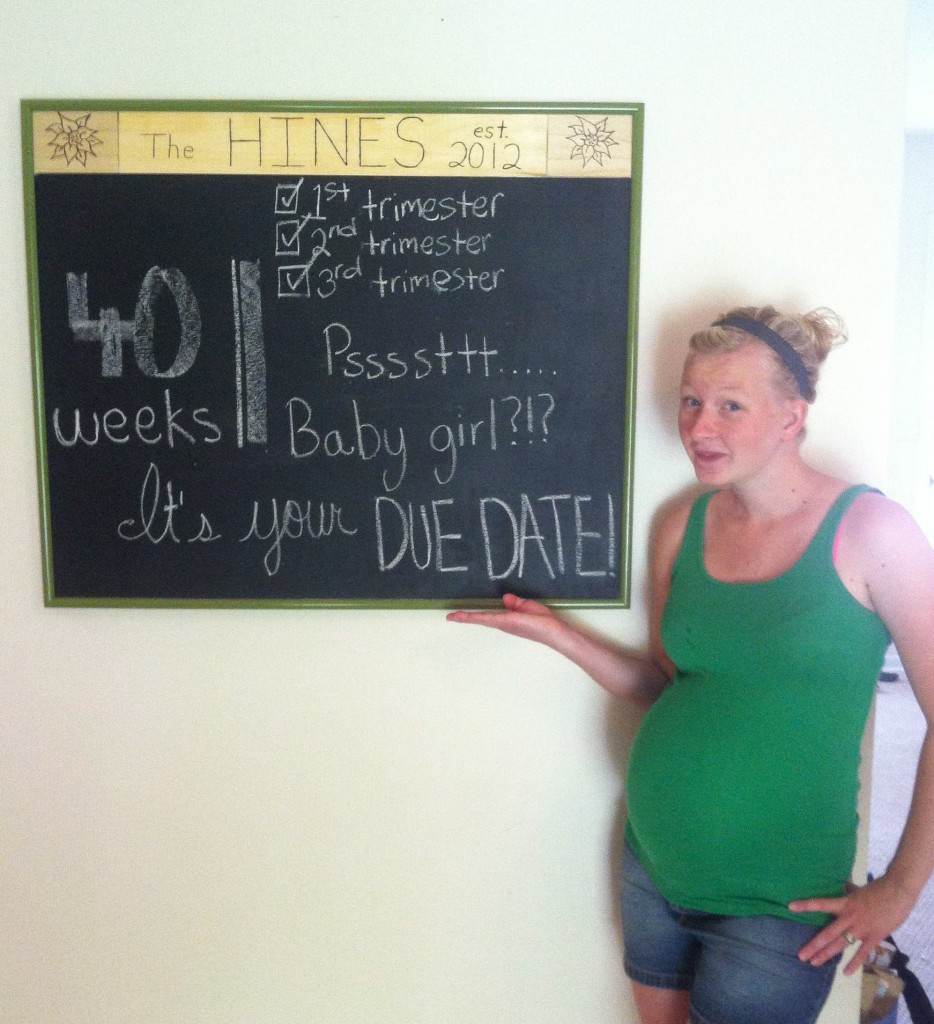 The HINES est. 2012
1st trimester
2nd trimester
3rd trimester
40 weeks
Pssssttt.....
Baby girl?!?
It's your DUE DATE!